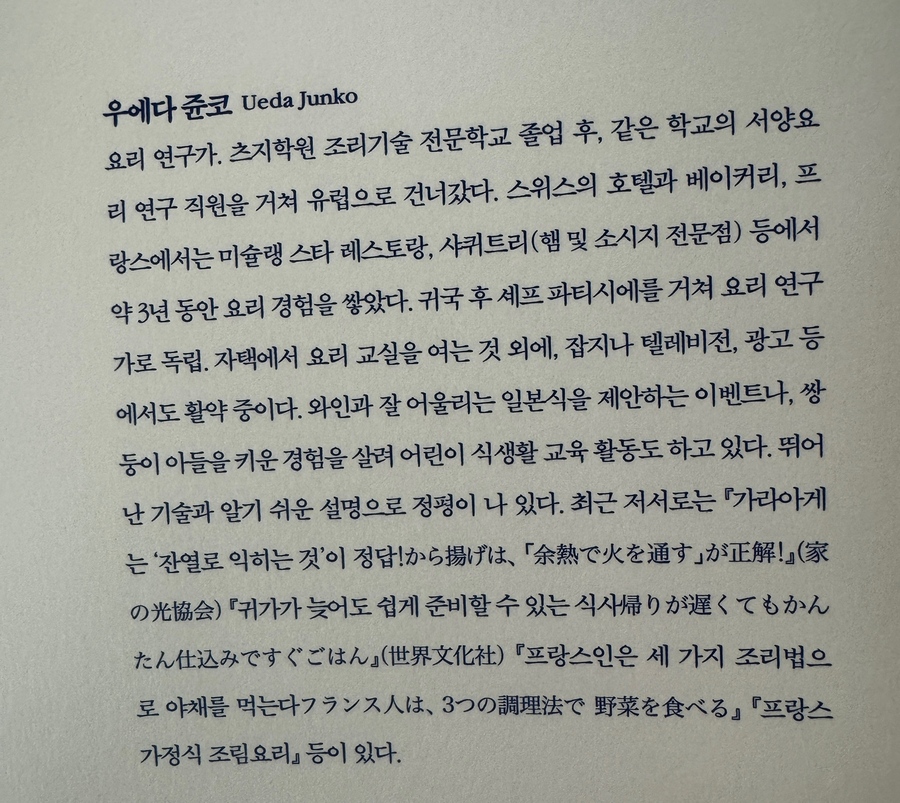 우에다 쥰코 Ueda Junko
요리 연구가. 츠지학원 조리기술 전문학교 졸업 후, 같은 학교의 서양요
리 연구 직원을 거쳐 유럽으로 건너갔다. 스위스의 호텔과 베이커리, 프
랑스에서는 미슐랭 스타 레스토랑, 샤퀴트리(햄 및 소시지 전문점) 등에서
약 3년 동안 요리 경험을 쌓았다. 귀국 후 셰프 파티시에를 거쳐 요리 연구
가로 독립. 자택에서 요리 교실을 여는 것 외에, 잡지나 텔레비전, 광고 등
에서도 활약 중이다. 와인과 잘 어울리는 일본식을 제안하는 이벤트나, 쌍
둥이 아들을 키운 경험을 살려 어린이 식생활 교육 활동도 하고 있다. 뛰어
난 기술과 알기 쉬운 설명으로 정평이 나 있다. 최근 저서로는 『가라아게
는 ‘잔열로 익히는 것’이 정답!から揚げは、「余熱で火を通す」が正解!』(家
の光協会) 『귀가가 늦어도 쉽게 준비할 수 있는 식사帰りが遅くてもかん
たん仕込みですぐごはん』(世界文化社) 『프랑스인은 세 가지 조리법으
로 야채를 먹는다フランス人は、3つの調理法で 野菜を食べる』 『프랑스
가정식 조림요리』 등이 있다.